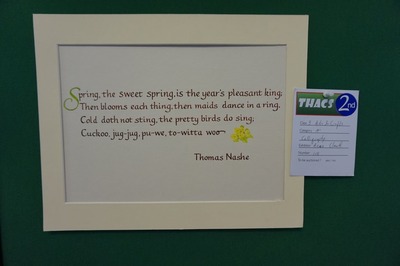 Spring, the sweet spring, is the year's pleasant king;
Then blooms each thing, then maids dance in a ring,
Cold doth not sting, the pretty birds do sing;
Cuckoo, jug-jug, pu-we, to-witta woo~
Thomas Nashe
THACS 2nd